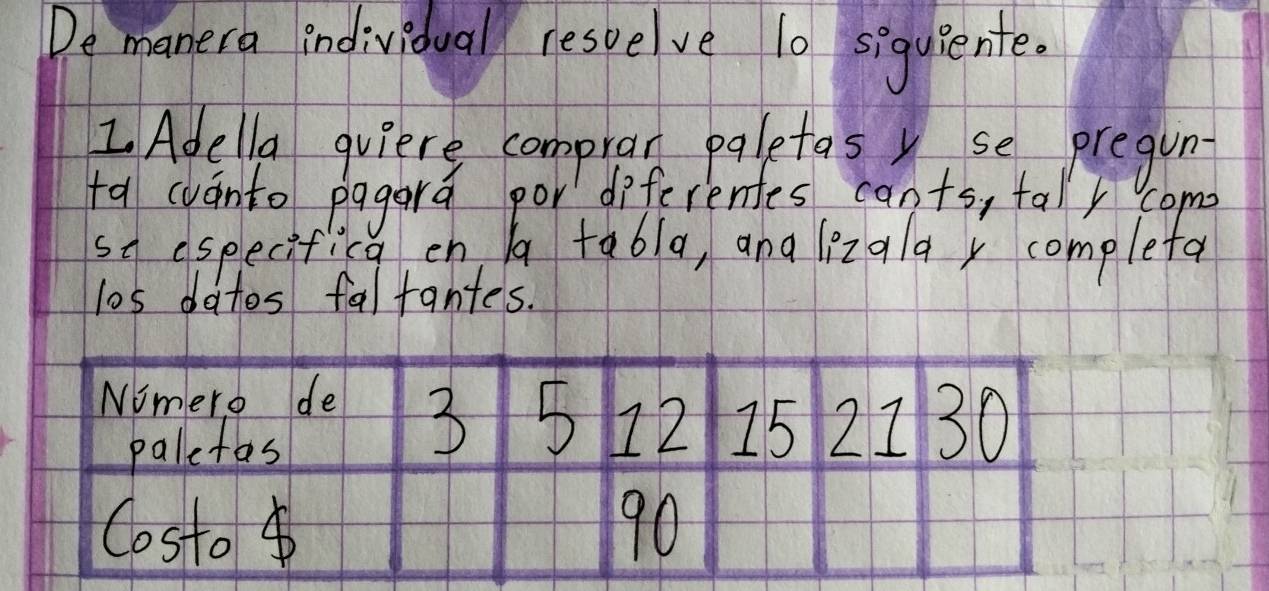 De manera individual resuelve lo siguiente.
1. Adella quiere comprar paletas y se pregun-
ta cuánto pagará por diferentes cants, tal y como
se especifica en la tabla, analízala y completa
los datos faltantes.
Número de paletas 3 5 12 15 21 30
Costo $ 90